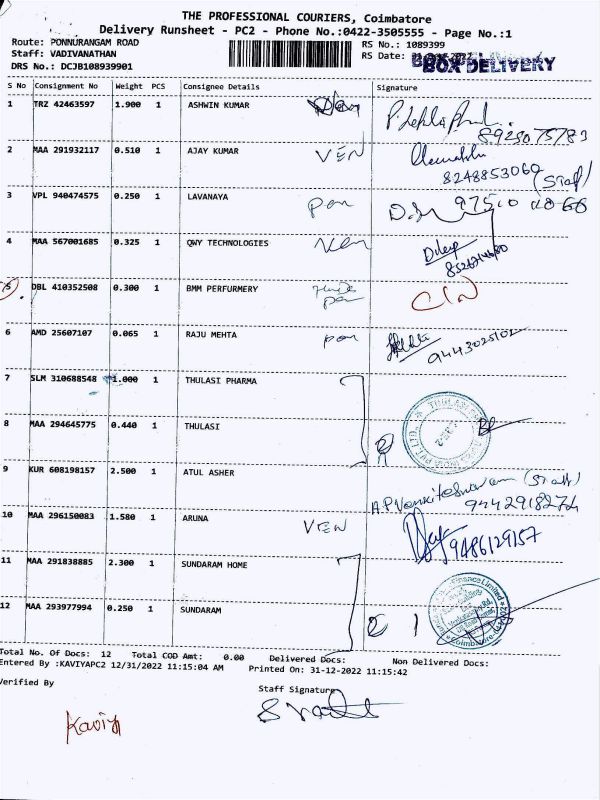 THE PROFESSIONAL COURIERS, Coimbatore
Delivery Runsheet - PC2 - Phone No.:0422-3505555 - Page No.:1
Route: PONNURANGAM ROAD RS No.: 1089399
Staff: VADIVANATHAN RS Date:
BOX DELIVERY
DRS No.: DCJB108939901
S No Consignment No Weight PCS Consignee Details Signature
1 TRZ 42463597 1.900 1 ASHWIN KUMAR
2 MAA 291932117 0.510 1 AJAY KUMAR VEN
8248853060 (Staff)
3 VPL 940474575 0.250 1 LAVANAYA pan
4 MAA 567001685 0.325 1 QWY TECHNOLOGIES Ven Dileep
5 DBL 410352508 0.300 1 BMM PERFURMERY pan
6 AMD 25607107 0.065 1 RAJU MEHTA pan
9443025102
7 SLM 310688548 1.000 1 THULASI PHARMA
8 MAA 294645775 0.440 1 THULASI
9 KUR 608198157 2.500 1 ATUL ASHER A.P Venkiteshwaram (Staff)
9442918274
10 MAA 296150083 1.580 1 ARUNA VEN
9486129157
11 MAA 291838885 2.300 1 SUNDARAM HOME
12 MAA 293977994 0.250 1 SUNDARAM
Total No. Of Docs: 12 Total COD Amt: 0.00 Delivered Docs: Non Delivered Docs:
Entered By :KAVIYAPC2 12/31/2022 11:15:04 AM Printed On: 31-12-2022 11:15:42
Verified By Staff Signature
Kaviya